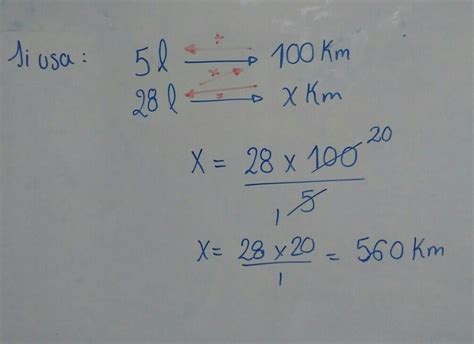 Si usa: 5l ÷ 100 Km
×
28l = x Km
X = 28 x 100 20
1 5
X = 28 x 20 = 560 Km
1